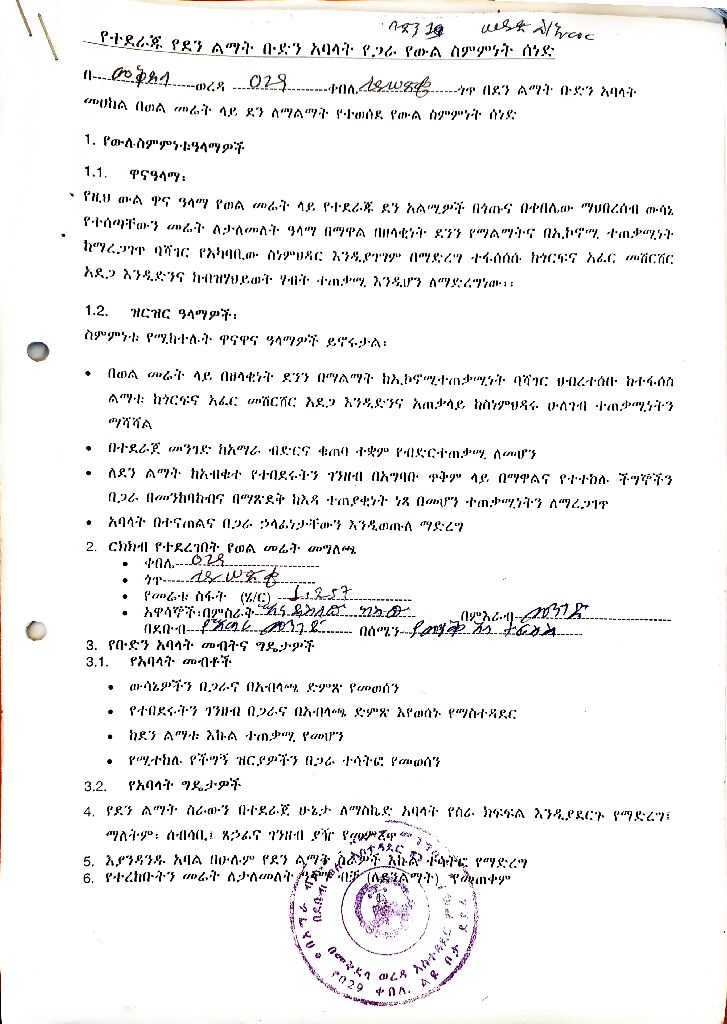 የተደራጁ የደን ልማት ቡድን አባላት የጋራ የውል ስምምነት ሰነድ
በ መቅደላ ወረዳ 029 ቀበሌ ጎጥ በደን ልማት ቡድን አባላት
መሀከል በወል መሬት ላይ ደን ለማልማት የተወሰደ የውል ስምምነት ሰነድ
1. የውሉስምምነቱዓላማዎች
1.1. ዋናዓላማ፡
የዚህ ውል ዋና ዓላማ የወል መሬት ላይ የተደራጁ ደን አልሚዎች በጎጡና በቀበሌው ማህበረሰብ ውሳኔ
የተሰጣቸውን መሬት ለታለመለት ዓላማ በማዋል በዘላቂነት ደንን የማልማትና በኢኮኖሚ ተጠቃሚነት
ከማረጋገጥ ባሻገር የአካባቢው ስነምህዳር እንዲያገግም በማድረግ ተፋሰሰሱ ከጎርፍና አፈር መሸርሸር
አደጋ እንዲድንና ከብዝሃህይወት ሃብት ተጠቃሚ እንዲሆን ለማድረግነው፡፡
1.2. ዝርዝር ዓላማዎች፡
ስምምነቱ የሚከተሉት ዋናዋና ዓላማዎች ይኖሩታል፡
• በወል መሬት ላይ በዘላቂነት ደንን በማልማት ከኢኮኖሚተጠቃሚነት ባሻገር ህብረተሰቡ ከተፋሰስ
ልማቱ ከጎርፍና አፈር መሸርሸር አደጋ እንዲድንና አጠቃላይ ከስነምህዳሩ ሁለገብ ተጠቃሚነትን
ማሻሻል
• በተደራጀ መንገድ ከአማራ ብድርና ቁጠባ ተቋም የብድርተጠቃሚ ለመሆን
• ለደን ልማት ከአብቁተ የተበደሩትን ገንዘብ በአግባቡ ጥቅም ላይ በማዋልና የተተከሉ ችግኞችን
በጋራ በመንከባከብና በማጽደቅ ከእዳ ተጠያቂነት ነጻ በመሆን ተጠቃሚነትን ለማረጋገጥ
• አባላት በተናጠልና በጋራ ኃላፊነታቸውን እንዲወጡለ ማድረግ
2. ርክክብ የተደረገበት የወል መሬት መግለጫ
• ቀበሌ 029
• ጎጥ
• የመሬቱ ስፋት (ሄ/ር) 1.257
• አዋሳኞች፡በምስራቅ በምእራብ መንገድ
በደቡብ መንገድ በሰሜን
3. የቡድን አባላት መብትና ግዴታዎች
3.1. የአባላት መብቶች
• ውሳኔዎችን በጋራና በአብላጫ ድምጽ የመወሰን
• የተበደሩትን ገንዘብ በጋራና በአብላጫ ድምጽ እየወሰኑ የማስተዳደር
• ከደን ልማቱ እኩል ተጠቃሚ የመሆን
• የሚተከሉ የችግኝ ዝርያዎችን በጋራ ተሳትፎ የመወሰን
3.2. የአባላት ግዴታዎች
4. የደን ልማት ስራውን በተደራጀ ሁኔታ ለማስኬድ አባላት የስራ ክፍፍል እንዲያደርጉ የማድረግ፤
ማለትም፡ ሰብሳቢ፤ ጸኃፊና ገንዘብ ያዥ የመምረጥ
5. እያንዳንዱ አባል በሁሉም የደን ልማት ስራዎች እኩል ተሳትፎ የማድረግ
6. የተረከቡትን መሬት ለታለመለት ዓላማ ብቻ (ለደንልማት) የመጠቀም
በመቅደላ ወረዳ አስተዳደር
የ029 ቀበሌ